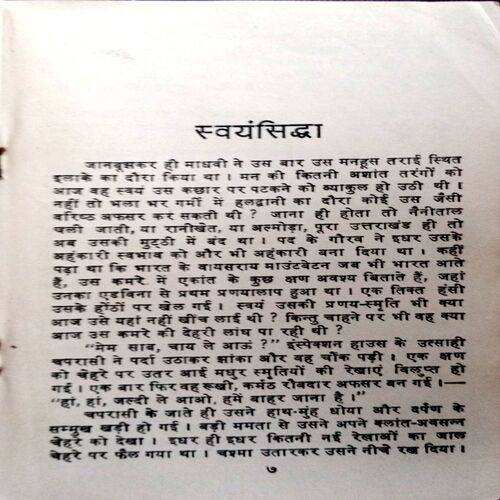 स्वयंसिद्धा
जानबूझकर ही माधवी ने उस बार उस मनहूस तराई स्थित
इलाके का दौरा किया था। मन की कितनी अशांत तरंगों को
आज वह स्वयं उस कछार पर पटकने को व्याकुल हो उठी थी।
नहीं तो भला भर गर्मी में हलद्वानी का दौरा कोई उस जैसी
वरिष्ठ अफसर कर सकती थी ? जाना ही होता तो नैनीताल
चली जाती, या रानीखेत, या अल्मोड़ा, पूरा उत्तराखंड ही तो
अब उसकी मुट्ठी में बंद था। पद के गौरव ने इधर उसके
अहंकारी स्वभाव को और भी अहंकारी बना दिया था। कहीं
पढ़ा था कि भारत के वायसराय माउंटबेटन जब भी भारत आते
हैं, उस कमरे में एकांत के कुछ क्षण अवश्य बिताते हैं, जहां
उनका एडविना से प्रथम प्रणयालाप हुआ था। एक तिक्त हंसी
उसके होंठों पर खेल गई। स्वयं उसकी प्रणय-स्मृति भी क्या
आज उसे यहां नहीं खींच लाई थी ? किन्तु चाहने पर भी वह क्या
आज उस कमरे की देहरी लांघ पा रही थी ?
"मेम साब, चाय ले आऊं ?" इंस्पेक्शन हाउस के उत्साही
चपरासी ने पर्दा उठाकर झांका और वह चौंक पड़ी। एक क्षण
को चेहरे पर उतर आई मधुर स्मृतियों की रेखाएं विलुप्त हो
गईं। एक बार फिर वह रूखी, कर्मठ रौबदार अफसर बन गई।—
"हां, हां, जल्दी ले आओ, हमें बाहर जाना है।"
चपरासी के जाते ही उसने हाथ-मुंह धोया और दर्पण के
सम्मुख खड़ी हो गई। बड़ी ममता से उसने अपने क्लांत-अवसन्न
चेहरे को देखा। इधर ही इधर कितनी नई रेखाओं का जाल
चेहरे पर फैल गया था। चश्मा उतारकर उसने नीचे रख दिया।
७